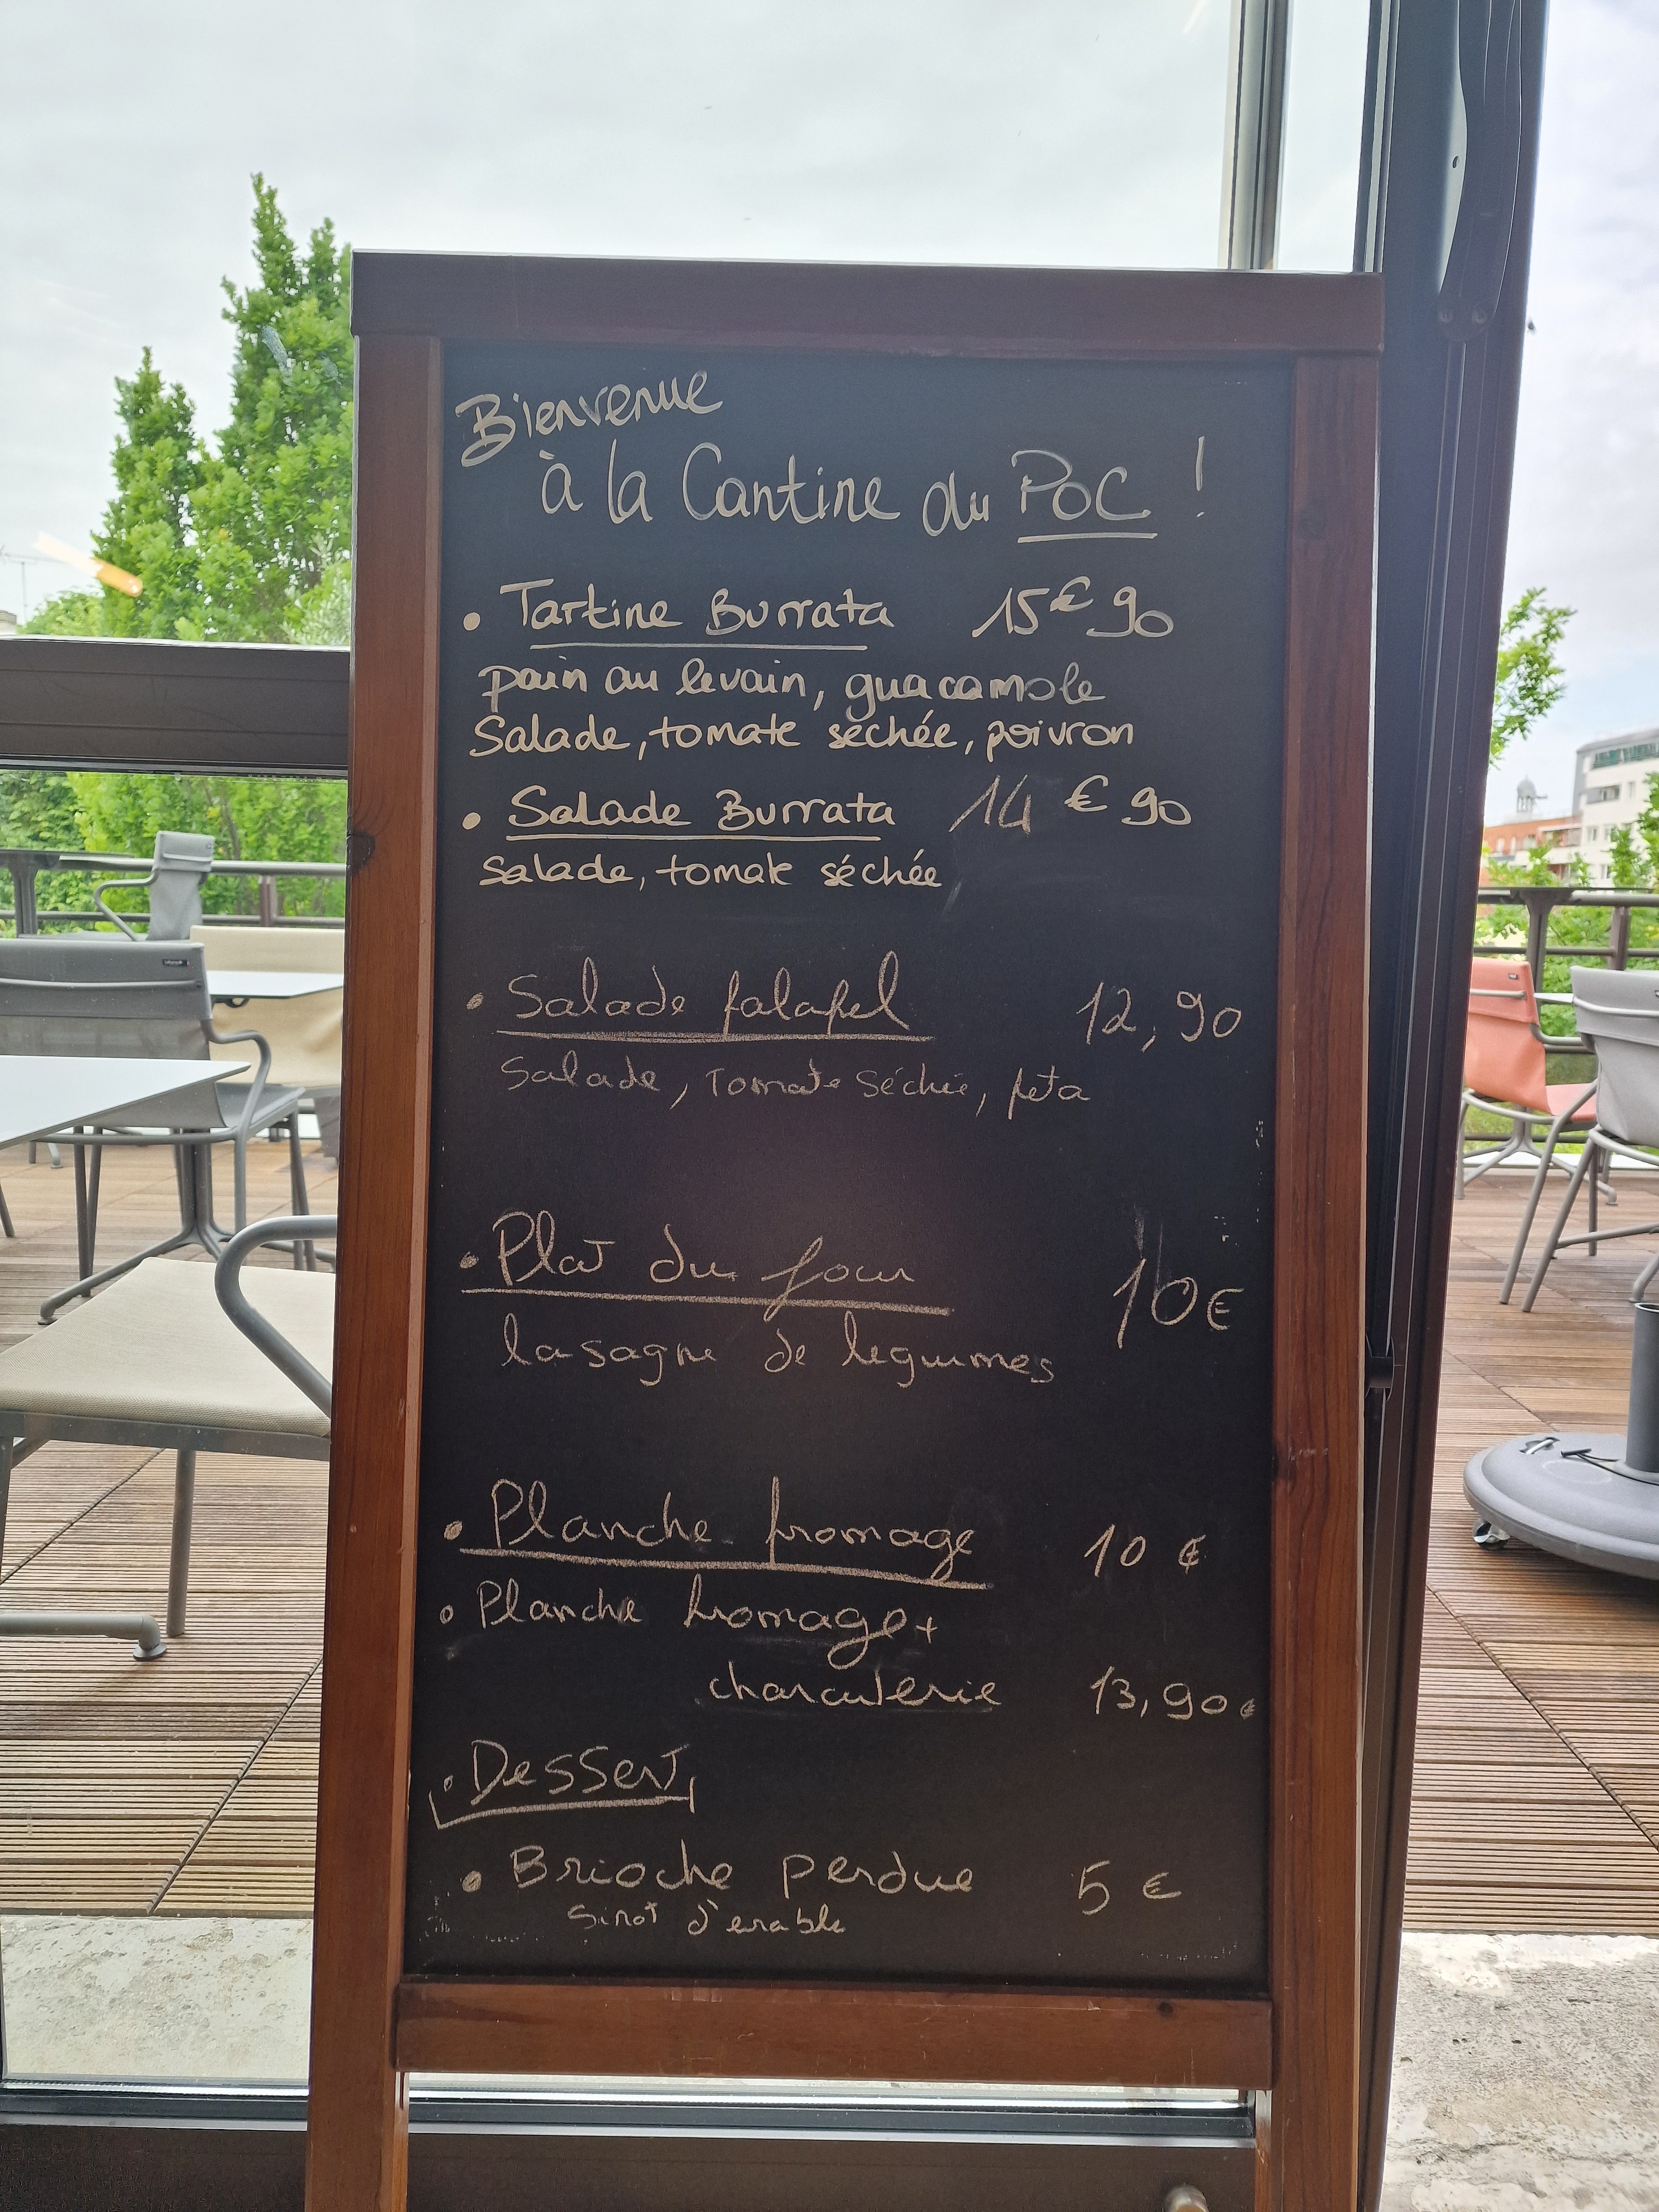 Bienvenue
à la Cantine du POC !
• Tartine Burrata 15€90
pain au levain, guacamole
Salade, tomate séchée, poivron
• Salade Burrata 14€90
salade, tomate séchée
• Salade falafel 12,90
Salade, Tomate séchée, feta
• Plat du jour 10€
lasagne de legumes
• Planche fromage 10 €
• Planche fromage +
charcuterie 13,90€
• Dessert
• Brioche perdue 5 €
Sirot d'erable